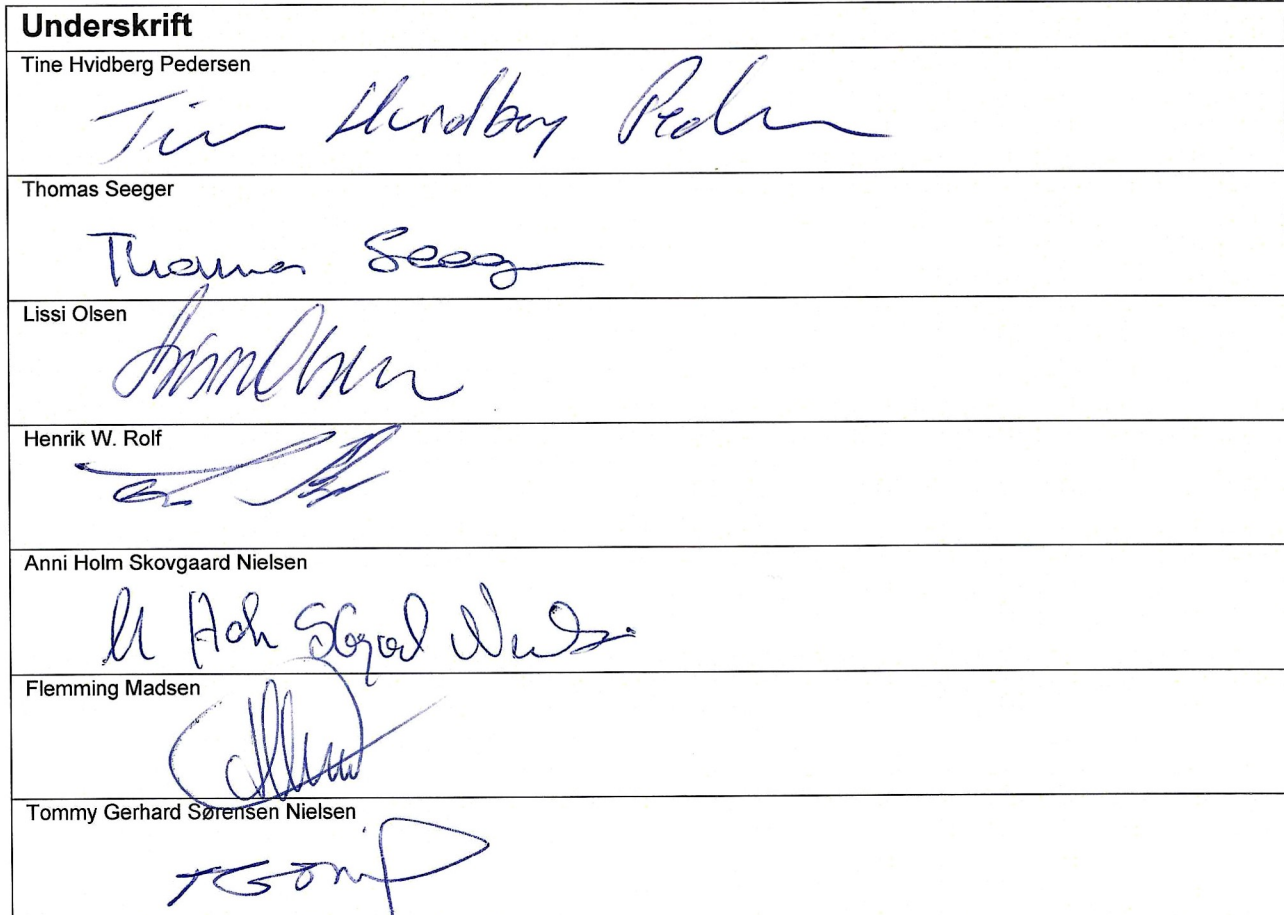 Underskrift
Tine Hvidberg Pedersen
Tine Hvidberg Pedersen
Thomas Seeger
Thomas Seeger
Lissi Olsen
Lissi Olsen
Henrik W. Rolf
Anni Holm Skovgaard Nielsen
Flemming Madsen
Tommy Gerhard Sørensen Nielsen